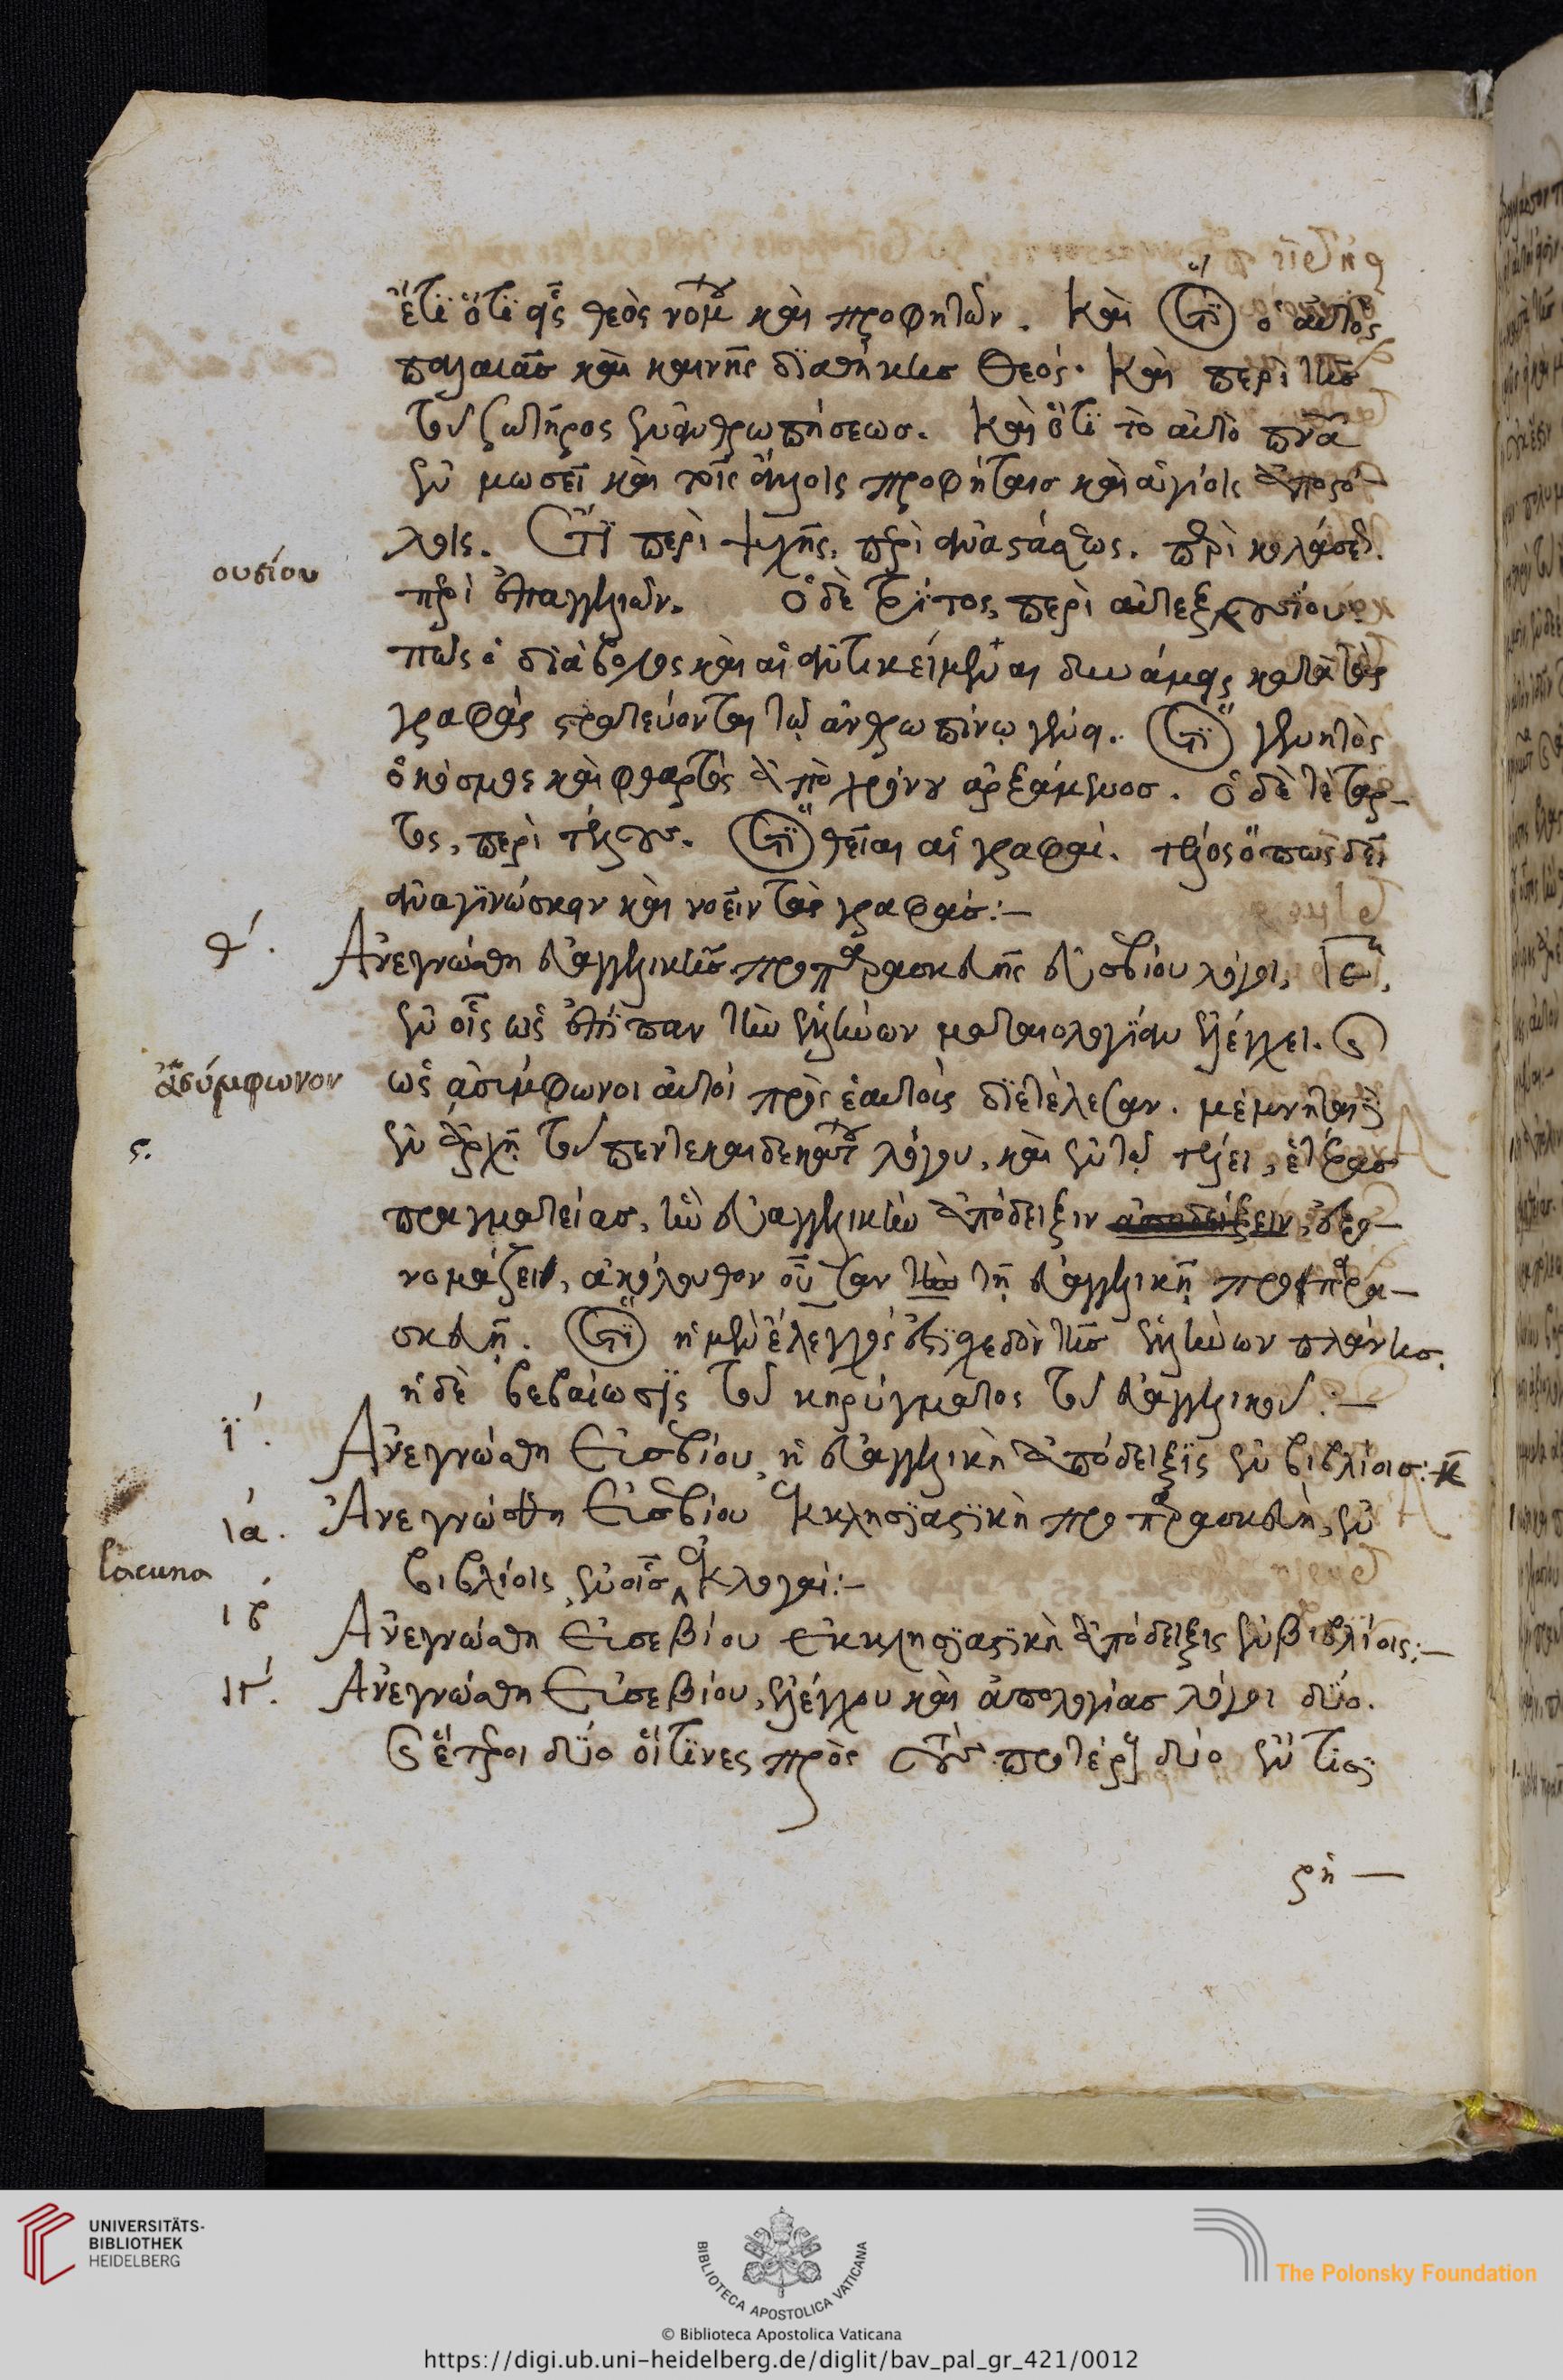 ἔτι ὅτι εἷς θεὸς νόμου καὶ προφητῶν. καὶ ὅτι ὁ αὐτὸς
παλαιᾶς καὶ καινῆς διαθήκης θεός. καὶ περὶ τῆς
τοῦ σωτῆρος ἐνανθρωπήσεως. καὶ ὅτι τὸ αὐτὸ πνᾶ
ἐν μωσεῖ καὶ τοῖς ἄλλοις προφήταις καὶ ἁγίοις ἀποστό-
λοις. ἔτι περὶ ψυχῆς, περὶ ἀναστάσεως. περὶ κολάσεων.
ουσίου
περὶ ἐπαγγελιῶν. ὁ δὲ τρίτος, περὶ αὐτεξουσίου.
πῶς ὁ διάβολος καὶ αἱ ἀντικείμεναι δυνάμεις κατὰ τὰς
γραφὰς στρατεύονται τῷ ἀνθρωπίνῳ γένει. ὅτι γενητὸς
ὁ κόσμος καὶ φθαρτὸς ἀπὸ χρόνου ἀρξάμενος. ὁ δὲ τέταρ-
τος, περὶ τέλους. ὅτι θεῖαι αἱ γραφαί. τέλος ὅπως δεῖ
ἀναγινώσκειν καὶ νοεῖν τὰς γραφάς:—
θ΄. Ἀνεγνώσθη εὐαγγελικῆς προπαρασκευῆς εὐσεβίου λόγοι, ιε,
ἐν οἷς ὡς ἐπίπαν τὴν ἑλλήνων ματαιολογίαν ἐλέγχει. καὶ
ἀσύμφωνον
ὡς ἀσύμφωνοι αὐτοὶ πρὸς ἑαυτοὺς διετέλεσαν. μέμνηται δὲ
ς.
ἐν ἀρχῇ τοῦ πεντεκαιδεκάτου λόγου, καὶ ἐν τῷ τέλει, ἑτέρας
πραγματείας, ἣν εὐαγγελικὴν ἀπόδειξιν ἀποδείξειν, ἐπο-
νομάζει, ἀκόλουθον οὖσαν τὴν τῇ εὐαγγελικῇ προπαρα-
σκευῇ. ὅτι ἡ μὲν ἔλεγχός ἐστι σχεδὸν τῆς ἑλλήνων πλάνης.
ἡ δὲ βεβαίωσις τοῦ κηρύγματος τοῦ εὐαγγελικοῦ:—
ϊ΄. Ἀνεγνώσθη Εὐσεβίου, ἡ εὐαγγελικὴ ἀπόδειξις ἐν βιβλίοις: κ
ια΄. Ἀνεγνώσθη Εὐσεβίου ἐκκλησιαστικὴ προπαρασκευὴ, ἐν
lacuna
βιβλίοις, ἐν οἷς ἐκλογαί:—
ιβ΄ Ἀνεγνώσθη Εὐσεβίου ἐκκλησιαστικὴ ἀπόδειξις ἐν βιβλίοις:—
ιγ΄. Ἀνεγνώσθη Εὐσεβίου, ἐλέγχου καὶ ἀπολογίας λόγοι δύο.
καὶ ἕτεροι δύο οἵτινες πρὸς τοὺς προτέρους δύο ἔν τισι
ῥη —
UNIVERSITÄTS-
BIBLIOTHEK
HEIDELBERG
BIBLIOTECA APOSTOLICA VATICANA
The Polonsky Foundation
© Biblioteca Apostolica Vaticana
https://digi.ub.uni-heidelberg.de/diglit/bav_pal_gr_421/0012